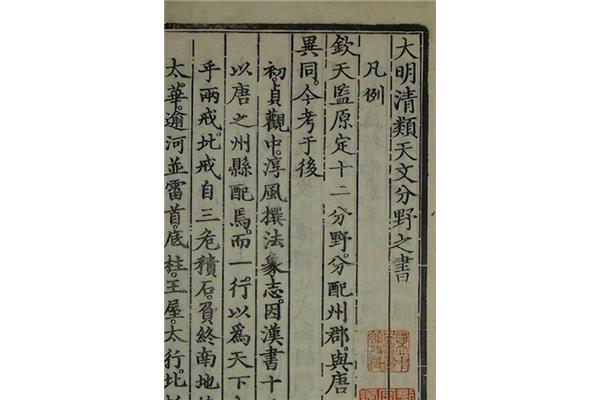 大明清類天文分野之書
凡例
欽天監原定十二分野。分配州郡。與唐
異同。今考于後
初。貞觀中。淳風撰法象志。因漢書十
以唐之州縣配焉。而一行以爲天下
乎兩戒。北戒自三危積石。負終南地
太華。逾河並雷首。底柱。王屋。太行。北